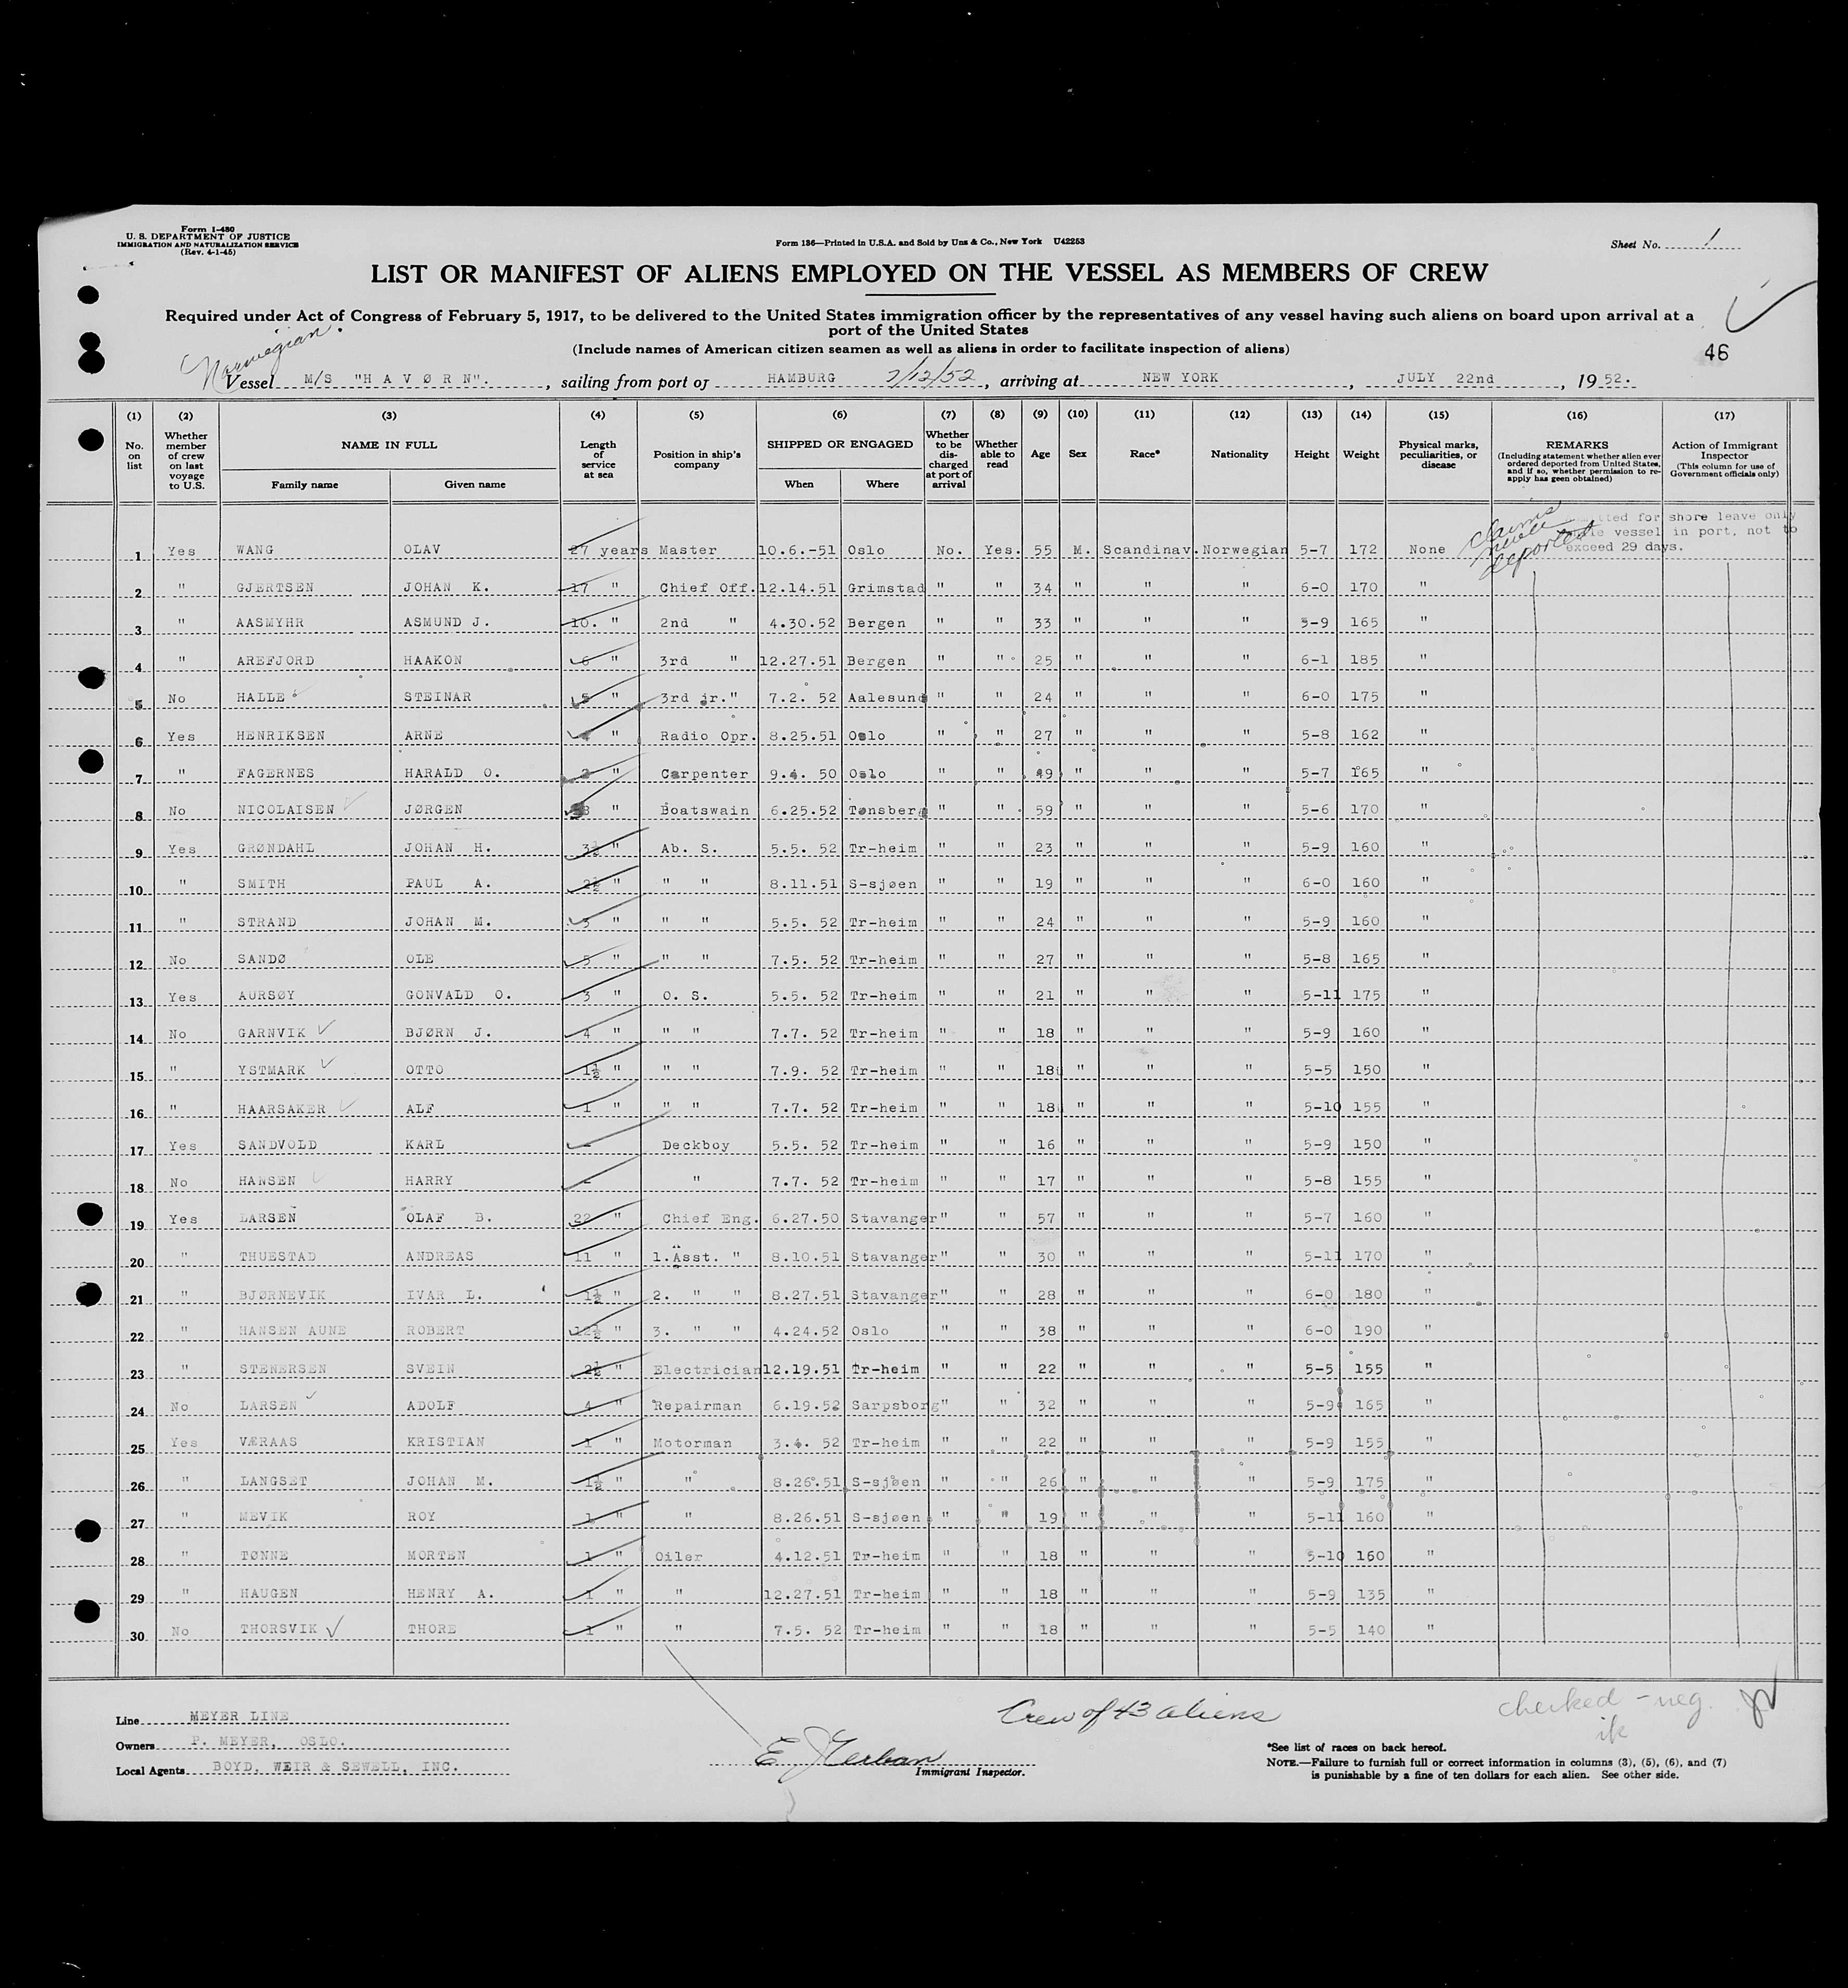 Form I-480
U. S. DEPARTMENT OF JUSTICE
IMMIGRATION AND NATURALIZATION SERVICE
(Rev. 4-1-45)
Form 136—Printed in U.S.A. and Sold by Unz & Co., New York U42253
Sheet No. 1
LIST OR MANIFEST OF ALIENS EMPLOYED ON THE VESSEL AS MEMBERS OF CREW
Required under Act of Congress of February 5, 1917, to be delivered to the United States immigration officer by the representatives of any vessel having such aliens on board upon arrival at a
port of the United States
(Include names of American citizen seamen as well as aliens in order to facilitate inspection of aliens)
46
Norwegian.
Vessel M/S "H A V Ø R N". , sailing from port of HAMBURG 7/12/52 , arriving at NEW YORK , JULY 22nd , 19 52.
(1) (2) (3) (4) (5) (6) (7) (8) (9) (10) (11) (12) (13) (14) (15) (16) (17)
No. on list
Whether member of crew on last voyage to U.S.
NAME IN FULL
Family name
Given name
Length of service at sea
Position in ship's company
SHIPPED OR ENGAGED
When
Where
Whether to be discharged at port of arrival
Whether able to read
Age
Sex
Race*
Nationality
Height
Weight
Physical marks, peculiarities, or disease
REMARKS
(Including statement whether alien ever ordered deported from United States, and if so, whether permission to re-apply has geen obtained)
Action of Immigrant Inspector
(This column for use of Government officials only)
claims never deported
for shore leave only
vessel in port, not to
exceed 29 days.
1 Yes WANG OLAV 27 years Master 10.6.-51 Oslo No. Yes. 55 M. Scandinav. Norwegian 5-7 172 None
2 " GJERTSEN JOHAN K. 17 " Chief Off. 12.14.51 Grimstad " " 34 " " " 6-0 170 "
3 " AASMYHR ASMUND J. 10. " 2nd " 4.30.52 Bergen " " 33 " " " 5-9 165 "
4 " AREFJORD HAAKON 6 " 3rd " 12.27.51 Bergen " " 25 " " " 6-1 185 "
5 No HALLE STEINAR 5 " 3rd jr." 7.2. 52 Aalesund " " 24 " " " 6-0 175 "
6 Yes HENRIKSEN ARNE 4 " Radio Opr. 8.25.51 Oslo " " 27 " " " 5-8 162 "
7 " FAGERNES HARALD O. " Carpenter 9.4. 50 Oslo " " 49 " " " 5-7 165 "
8 No NICOLAISEN JØRGEN " Boatswain 6.25.52 Tønsberg " " 59 " " " 5-6 170 "
9 Yes GRØNDAHL JOHAN H. 3½ " Ab. S. 5.5. 52 Tr-heim " " 23 " " " 5-9 160 "
10 " SMITH PAUL A. 2½ " " " 8.11.51 S-sjøen " " 19 " " " 6-0 160 "
11 " STRAND JOHAN M. 3 " " " 5.5. 52 Tr-heim " " 24 " " " 5-9 160 "
12 No SANDØ OLE 5 " " " 7.5. 52 Tr-heim " " 27 " " " 5-8 165 "
13 Yes AURSØY GONVALD O. 3 " O. S. 5.5. 52 Tr-heim " " 21 " " " 5-11 175 "
14 No GARNVIK BJØRN J. 4 " " " 7.7. 52 Tr-heim " " 18 " " " 5-9 160 "
15 " YSTMARK OTTO 1½ " " " 7.9. 52 Tr-heim " " 18 " " " 5-5 150 "
16 " HAARSAKER ALF 1 " " " 7.7. 52 Tr-heim " " 18 " " " 5-10 155 "
17 Yes SANDVOLD KARL - Deckboy 5.5. 52 Tr-heim " " 16 " " " 5-9 150 "
18 No HANSEN HARRY - " 7.7. 52 Tr-heim " " 17 " " " 5-8 155 "
19 Yes LARSEN OLAF B. 22 " Chief Eng. 6.27.50 Stavanger " " 57 " " " 5-7 160 "
20 " THUESTAD ANDREAS 11 " 1.Asst. " 8.10.51 Stavanger " " 30 " " " 5-11 170 "
21 " BJØRNEVIK IVAR L. 1½ " 2. " " 8.27.51 Stavanger " " 28 " " " 6-0 180 "
22 " HANSEN AUNE ROBERT 12½ " 3. " " 4.24.52 Oslo " " 38 " " " 6-0 190 "
23 " STENERSEN SVEIN 2½ " Electrician 12.19.51 Tr-heim " " 22 " " " 5-5 155 "
24 No LARSEN ADOLF 4 " Repairman 6.19.52 Sarpsborg " " 32 " " " 5-9 165 "
25 Yes VÆRAAS KRISTIAN 1 " Motorman 3.4. 52 Tr-heim " " 22 " " " 5-9 155 "
26 " LANGSET JOHAN M. 1½ " " 8.26.51 S-sjøen " " 26 " " " 5-9 175 "
27 " MEVIK ROY 1 " " 8.26.51 S-sjøen " " 19 " " " 5-11 160 "
28 " TØNNE MORTEN 1 " Oiler 4.12.51 Tr-heim " " 18 " " " 5-10 160 "
29 " HAUGEN HENRY A. 1 " " 12.27.51 Tr-heim " " 18 " " " 5-9 135 "
30 No THORSVIK THORE 1 " " 7.5. 52 Tr-heim " " 18 " " " 5-5 140 "
Line MEYER LINE
Owners P. MEYER, OSLO.
Local Agents BOYD, WEIR & SEWELL, INC.
Crew of 43 aliens
Immigrant Inspector.
checked - neg.
*See list of races on back hereof.
NOTE.—Failure to furnish full or correct information in columns (3), (5), (6), and (7)
is punishable by a fine of ten dollars for each alien. See other side.